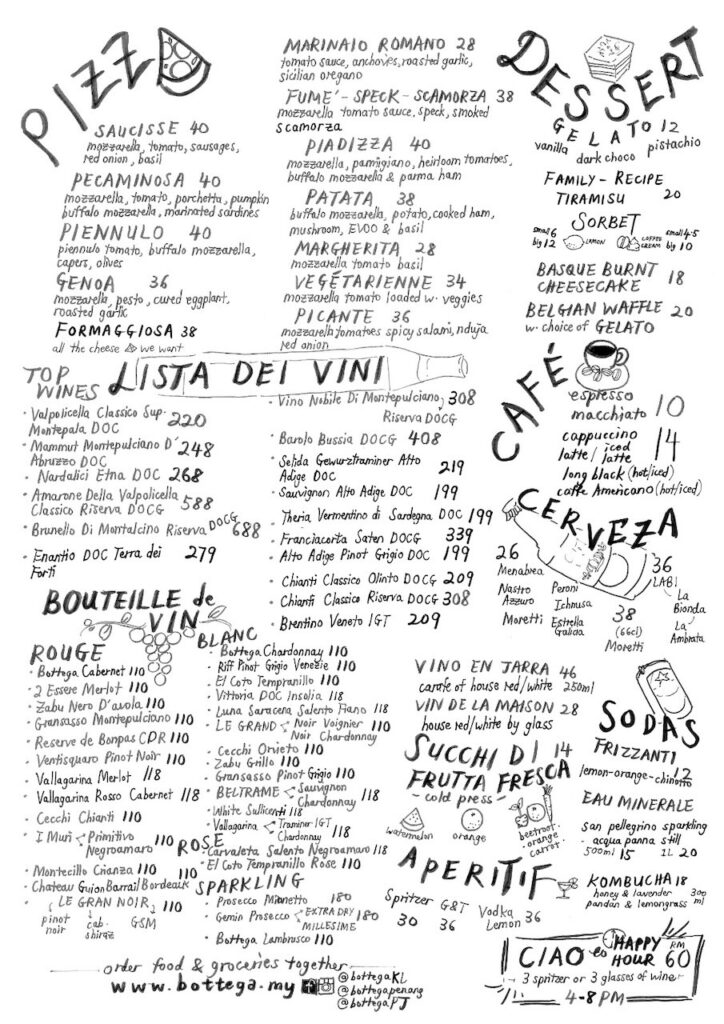 PIZZ
SAUCISSE 40
mozzarella, tomato, sausages,
red onion, basil
PECAMINOSA 40
mozzarella, tomato, porchetta, pumpkin
buffalo mozzarella, marinated sardines
PIENNULO 40
piennulo tomato, buffalo mozzarella,
capers, olives
GENOA 36
mozzarella, pesto, cured eggplant,
roasted garlic
FORMAGGIOSA 38
all the cheese we want
MARINAIO ROMANO 28
tomato sauce, anchovies, roasted garlic,
sicilian oregano
FUME' - SPECK - SCAMORZA 38
mozzarella tomato sauce, speck, smoked
scamorza
PIADIZZA 40
mozzarella, parmigiano, heirloom tomatoes,
buffalo mozzarella & parma ham
PATATA 38
buffalo mozzarella, potato, cooked ham,
mushroom, EVOO & basil
MARGHERITA 28
mozzarella tomato basil
VEGÉTARIENNE 34
mozzarella tomato loaded w. veggies
PICANTE 36
mozzarella tomatoes spicy salami, nduja
red onion
DESSERT
GELATO 12
vanilla dark choco pistachio
FAMILY - RECIPE
TIRAMISU 20
SORBET
small 6
big 12
LEMON
COFFEE
CREAM
small 4.5
big 10
BASQUE BURNT
CHEESECAKE 18
BELGIAN WAFFLE 20
w. choice of GELATO
TOP
WINES
LISTA DEI VINI
• Valpolicella Classico Sup.
Montepala DOC 220
• Mammut Montepulciano D'
Abruzzo DOC 248
• Nardalici Etna DOC 268
• Amarone Della Valpolicella
Classico Riserva DOCG 588
• Brunello Di Montalcino Riserva DOCG 688
• Enantio DOC Terra dei
Forti 279
• Vino Nobile Di Montepulciano, 308
Riserva DOCG
• Barolo Bussia DOCG 408
• Selida Gewurztraminer Alto
Adige DOC 219
• Sauvignon Alto Adige DOC 199
• Theria Vermentino di Sardegna DOC 199
• Franciacorta Saten DOCG 339
• Alto Adige Pinot Grigio DOC 199
• Chianti Classico Olinto DOCG 209
• Chianti Classico Riserva DOCG 308
• Brentino Veneto IGT 209
CAFÉ
espresso
macchiato 10
cappuccino
latte/ iced
latte 14
long black (hot/iced)
caffe Americano (hot/iced)
CERVEZA
26
Menabrea
Nastro
Azzuro
Moretti
Peroni
Ichnusa
Estrella
Galicia
38
(66cl)
Moretti
36
LABI
La
Bionda
La
Ambrata
BOUTEILLE de
VIN
ROUGE
• Bottega Cabernet 110
• 2 Essere Merlot 110
• Zabu Nero D'avola 110
• Gransasso Montepulciano 110
• Reserve de Bonpas CDR 110
• Ventisquaro Pinot Noir 110
• Vallagarina Merlot 118
• Vallagarina Rosso Cabernet 118
• Cecchi Chianti 110
• I Muri Primitivo
Negroamaro 110
• Montecillo Crianza 110
• Chateau Guion Barrail Bordeaux 110
• LE GRAN NOIR 110
pinot
noir
cab.
shiraz
GSM
BLANC
• Bottega Chardonnay 110
• Riff Pinot Grigio Venezie 110
• El Coto Tempranillo 110
• Vittoria DOC Insolia 118
• Luna Saracera Salento Fiano 118
• LE GRAND Noir Voignier
Noir Chardonnay 110
• Cecchi Orvieto 110
• Zabu Grillo 110
• Gransasso Pinot Grigio 110
• BELTRAME Sauvignon
Chardonnay 118
• White Salicenti 118
• Vallagarina Traminer IGT
Chardonnay 118
ROSE
• Carvaleta Salento Negroamaro 118
• El Coto Tempranillo Rose 110
SPARKLING
• Prosecco Mionetto 180
• Gemin Prosecco EXTRA DRY
MILLESIME 180
• Bottega Lambrusco 110
VINO EN JARRA 46
carafe of house red/white 250ml
VIN DE LA MAISON 28
house red/white by glass
SUCCHI DI 14
FRUTTA FRESCA
- cold press -
watermelon
orange
beetroot.
orange
carrot
APERITIF
Spritzer 30
G&T 36
Vodka
Lemon 36
SODAS
FRIZZANTI
lemon-orange-chinotto 12
EAU MINERALE
san pellegrino sparkling
acqua panna still
500ml 15 1L 20
KOMBUCHA 18
honey & lavender 300
pandan & lemongrass ml
CIAO HAPPY
HOUR RM
60
3 spritzer or 3 glasses of wine
4-8 PM
order food & groceries together
www.bottega.my
@bottegaKL
@bottegapenang
@bottegaPJ